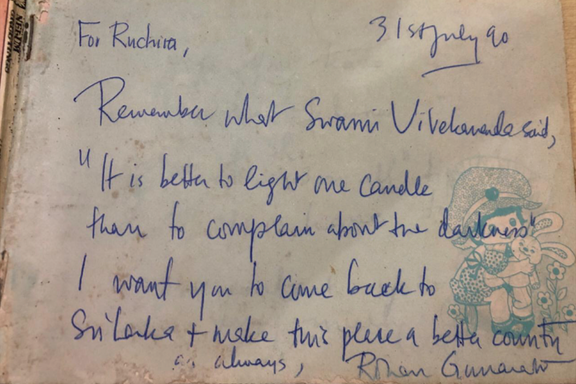 For Ruchira,
31st July 90
Remember what Swami Vivekananda said,
"It is better to light one candle
than to complain about the darkness"
I want you to come back to
Sri Lanka + make this place a better country
as always, Rohan Gunaratna